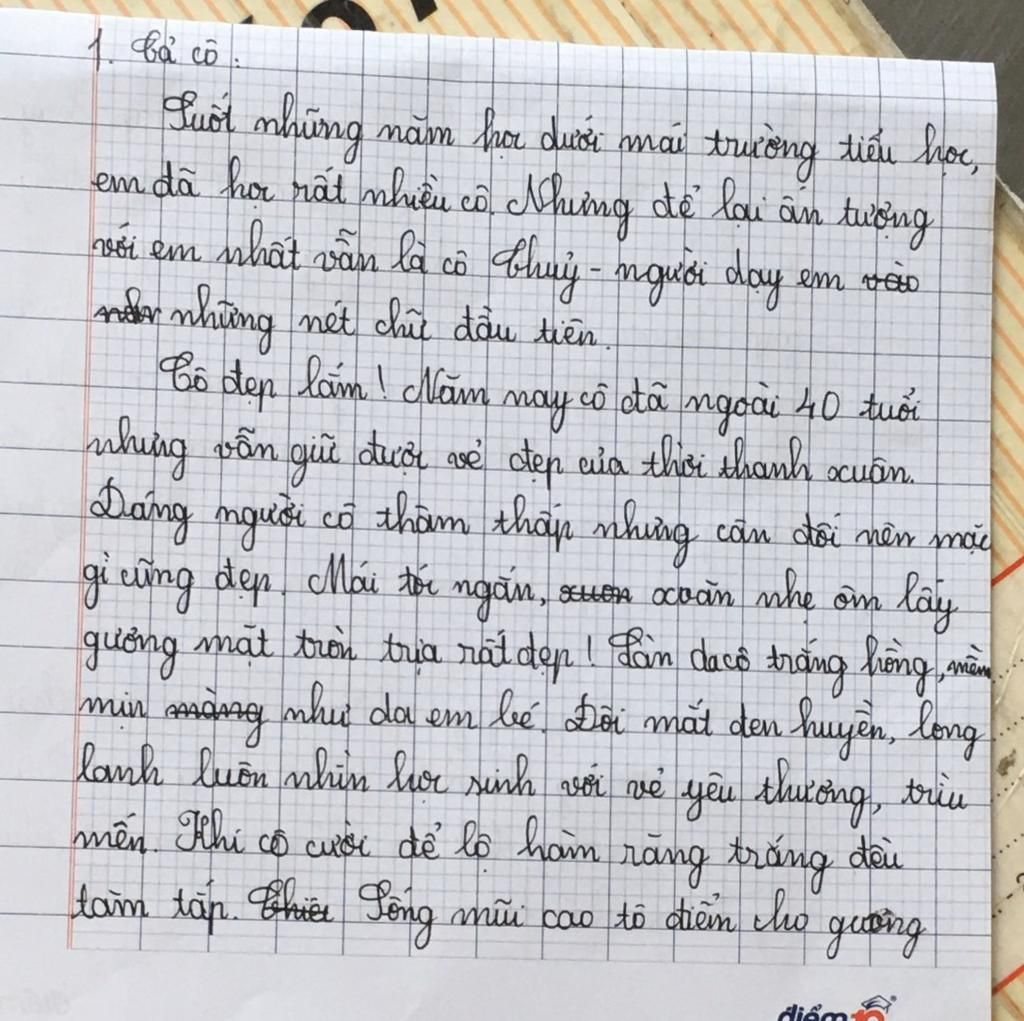 1. Cả cô:
Suốt những năm học dưới mái trường tiểu học,
em đã học rất nhiều cô. Nhưng để lại ấn tượng
với em nhất vẫn là cô Thuỷ - người dạy em vào
những nét chữ đầu tiên.
Cô đẹp lắm! Năm nay cô đã ngoài 40 tuổi
nhưng vẫn giữ được vẻ đẹp của thời thanh xuân.
Dáng người cô thâm thấp nhưng cân đối nên mặc
gì cũng đẹp. Mái tóc ngắn, xoăn nhẹ ôm lấy
gương mặt tròn trịa rất đẹp! Làn da cô trắng hồng, mềm
mịn màng như da em bé. Đôi mắt đen huyền, long
lanh luôn nhìn học sinh với vẻ yêu thương, trìu
mến. Khi cô cười để lộ hàm răng trắng đều
tăm tắp. Sống mũi cao tô điểm cho gương
điểm 10